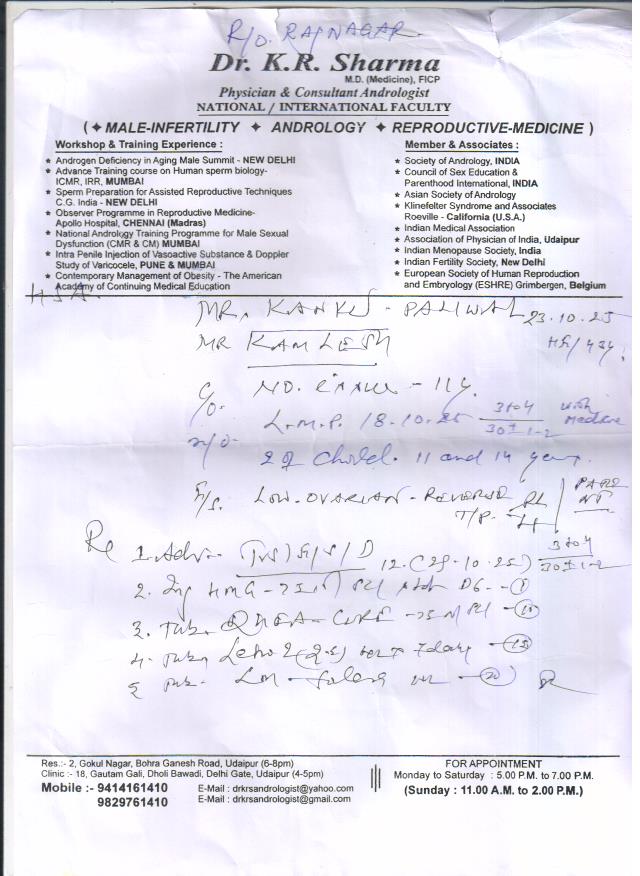 R/o. RAJNAGAR
Dr. K.R. Sharma
M.D. (Medicine), FICP
Physician & Consultant Andrologist
NATIONAL / INTERNATIONAL FACULTY
( ✦ MALE-INFERTILITY ✦ ANDROLOGY ✦ REPRODUCTIVE-MEDICINE )
Workshop & Training Experience :
★ Androgen Deficiency in Aging Male Summit - NEW DELHI
★ Advance Training course on Human sperm biology-
ICMR, IRR, MUMBAI
★ Sperm Preparation for Assisted Reproductive Techniques
C.G. India - NEW DELHI
★ Observer Programme in Reproductive Medicine-
Apollo Hospital, CHENNAI (Madras)
★ National Andrology Training Programme for Male Sexual
Dysfunction (CMR & CM) MUMBAI
★ Intra Penile Injection of Vasoactive Substance & Doppler
Study of Varicocele, PUNE & MUMBAI
★ Contemporary Management of Obesity - The American
Academy of Continuing Medical Education
Member & Associates :
★ Society of Andrology, INDIA
★ Council of Sex Education &
Parenthood International, INDIA
★ Asian Society of Andrology
★ Klinefelter Syndrome and Associates
Roeville - California (U.S.A.)
★ Indian Medical Association
★ Association of Physician of India, Udaipur
★ Indian Menopause Society, India
★ Indian Fertility Society, New Delhi
★ European Society of Human Reproduction
and Embryology (ESHRE) Grimbergen, Belgium
MR. PALIWAL 23.10.25
MR KAMLESH
C/o. NO. - 11y
L.M.P. 18.10.25 3to4 with
30±1-2
2 of child. 11 and 14 years.
LOW-OVARIAN-REVERSE
T/P.
1. Adv- 12. (29.10.25) 3to4
30±1-2
2. Inj HMG -
3. Tab. - 10
4. Letro 2 (2.5) 7 days - 15
5 - 20
Res.:- 2, Gokul Nagar, Bohra Ganesh Road, Udaipur (6-8pm)
Clinic :- 18, Gautam Gali, Dholi Bawadi, Delhi Gate, Udaipur (4-5pm)
Mobile :- 9414161410 E-Mail : drkrsandrologist@yahoo.com
9829761410 E-Mail : drkrsandrologist@gmail.com
FOR APPOINTMENT
Monday to Saturday : 5.00 P.M. to 7.00 P.M.
(Sunday : 11.00 A.M. to 2.00 P.M.)